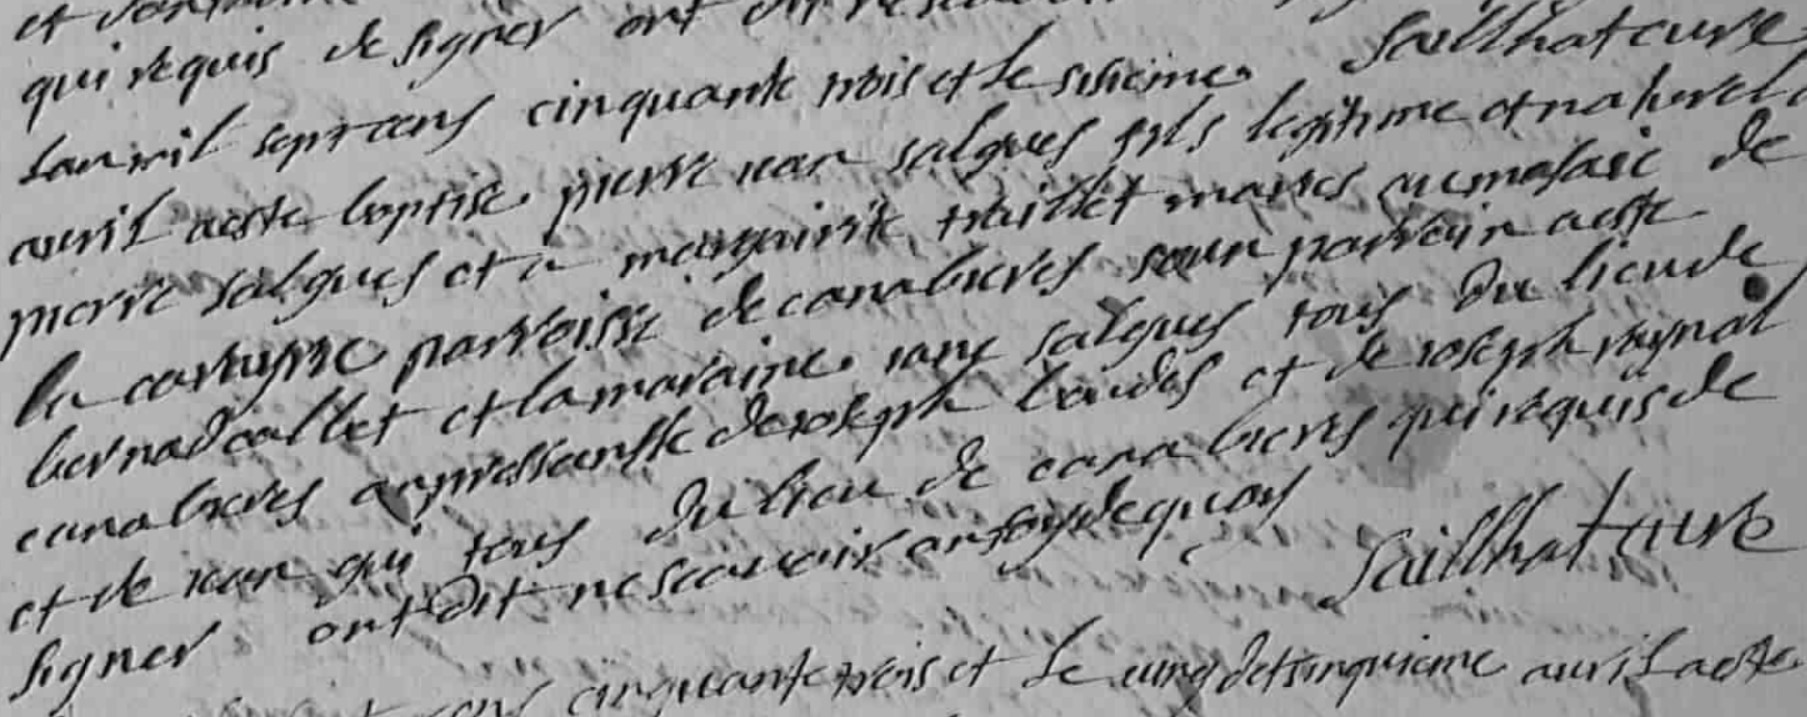 qui requis de signer ont dit
Sailhat curé
Lan mil sept cens cinquante trois et le sisieme
avril a este baptise pierre jean salgues fils legitime et naturel a
pierre salgues et a marguirite traillet maries au masaie de
la parroisse de canabieres son parrein a este
bernad callet et la maraine jane salgues tous du lieu de
canabieres en pressanse de joseph baudes et de joseph raynal
et de jean qui tous du lieu de canabieres qui requis de
signer ont dit ne scavoir en foy de quoy
Sailhat curé
cinquante trois et le vingt et sinquieme avril a este